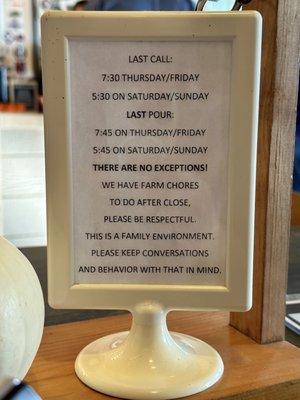 LAST CALL:
7:30 THURSDAY/FRIDAY
5:30 ON SATURDAY/SUNDAY
LAST POUR:
7:45 ON THURSDAY/FRIDAY
5:45 ON SATURDAY/SUNDAY
THERE ARE NO EXCEPTIONS!
WE HAVE FARM CHORES
TO DO AFTER CLOSE,
PLEASE BE RESPECTFUL.
THIS IS A FAMILY ENVIRONMENT.
PLEASE KEEP CONVERSATIONS
AND BEHAVIOR WITH THAT IN MIND.